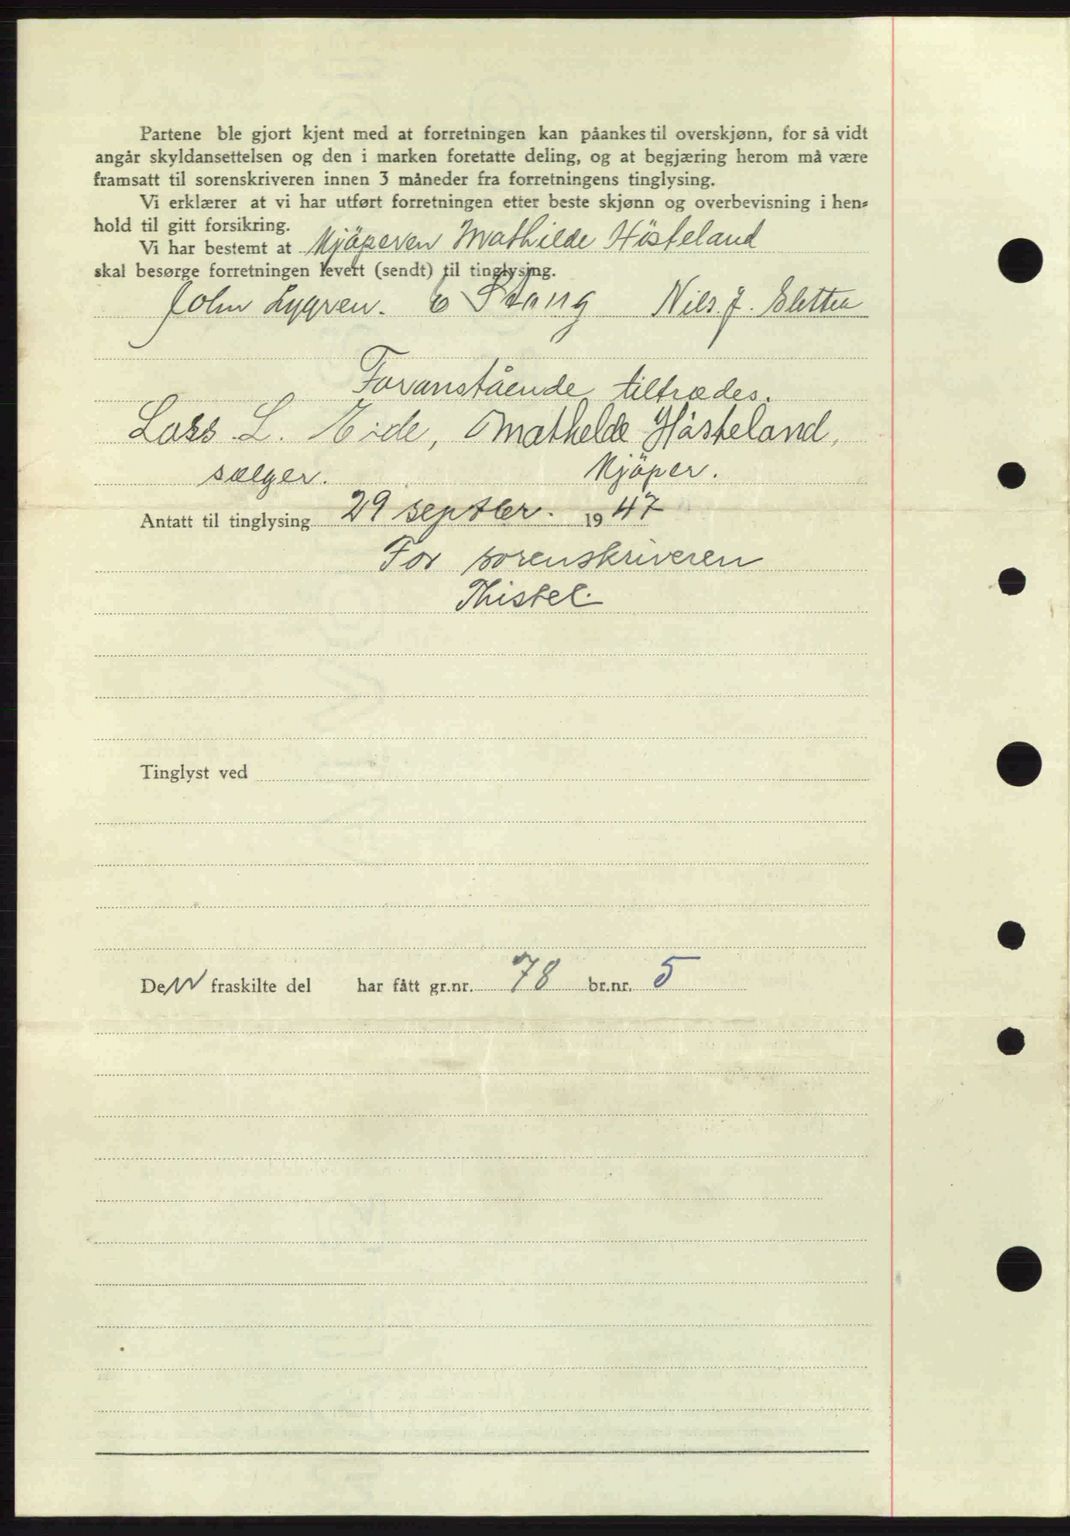 Partene ble gjort kjent med at forretningen kan påankes til overskjønn, for så vidt
angår skyldansettelsen og den i marken foretatte deling, og at begjæring herom må være
framsatt til sorenskriveren innen 3 måneder fra forretningens tinglysing.
Vi erklærer at vi har utført forretningen etter beste skjønn og overbevisning i hen-
hold til gitt forsikring.
Vi har bestemt at Kjöperen Mathilde Hösteland
skal besørge forretningen levert (sendt) til tinglysing.
John Lygren. Stang Nils. J.
Foranstående tiltrædes.
Lars L. Eide, Mathelde Hösteland,
sælger. Kjöper.
Antatt til tinglysing 29 septber. 1947
For sorenskriveren
Thistel.
Tinglyst ved
Den fraskilte del har fått gr.nr. 78 br.nr. 5